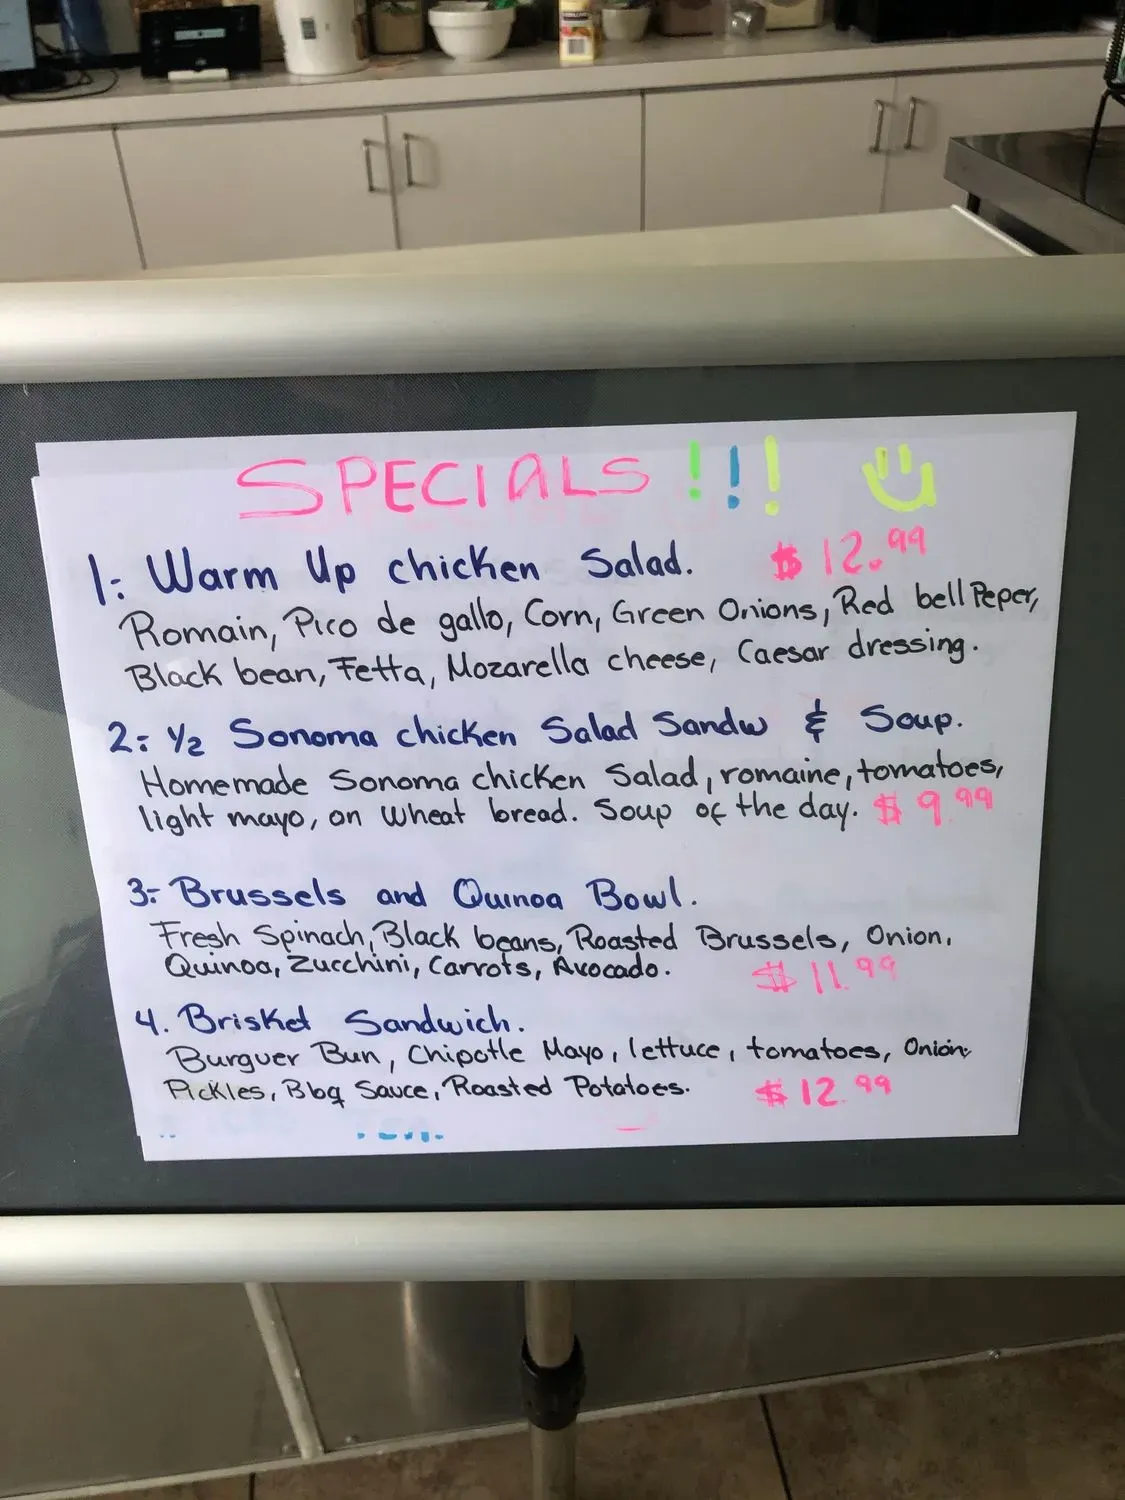 SPECIALS !!!
1: Warm Up chicken Salad. $12.99
Romain, Pico de gallo, Corn, Green Onions, Red bell Peper,
Black bean, Fetta, Mozarella cheese, Caesar dressing.
2: ½ Sonoma chicken Salad Sandw & Soup.
Homemade Sonoma chicken Salad, romaine, tomatoes,
light mayo, on wheat bread. Soup of the day. $9.99
3: Brussels and Quinoa Bowl.
Fresh Spinach, Black beans, Roasted Brussels, Onion,
Quinoa, Zucchini, Carrots, Avocado. $11.99
4. Brisket Sandwich.
Burguer Bun, Chipotle Mayo, lettuce, tomatoes, Onion,
Pickles, Bbq Sauce, Roasted Potatoes. $12.99